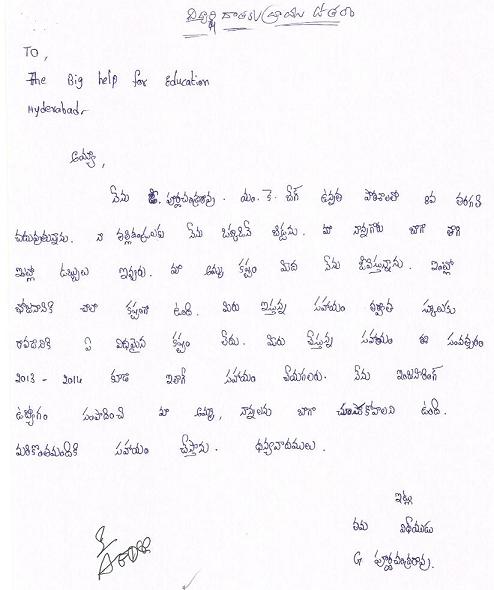 విద్యార్థి దాతకు వ్రాయు ఉత్తరం
TO,
The Big help for Education
Hyderabad.
అమ్మా,
నేను జి. పూర్ణచంద్రరావు. యం. కె. బేగ్ ఉన్నత పాఠశాలలో 8వ తరగతి
చదువుతున్నాను. నా తల్లిదండ్రులకు నేను ఒక్కడినే బిడ్డను. మా నాన్నగారు బాగా తాగి
ఇంట్లో డబ్బులు ఇవ్వరు. మా అమ్మ కష్టం మీద నేను జీవిస్తున్నాను. ఇంట్లో
భోజనానికి చాలా కష్టంగా ఉంది. మీరు ఇస్తున్న సహాయం తర్వాత స్కూలుకు
రావడానికి ఏ విధమైన కష్టం లేదు. మీరు చేస్తున్న సహాయం ఈ సంవత్సరం
2013 - 2014 కూడా ఇలాగే సహాయం చేయగలరు. నేను ఇంజనీరింగ్
ఉద్యోగం సంపాదించి మా అమ్మ, నాన్నలను బాగా చూసుకోవాలని ఉంది.
మరికొంతమందికి సహాయం చేస్తాను. ధన్యవాదములు.
ఇట్లు
తమ విధేయుడు
G పూర్ణచంద్రరావు.